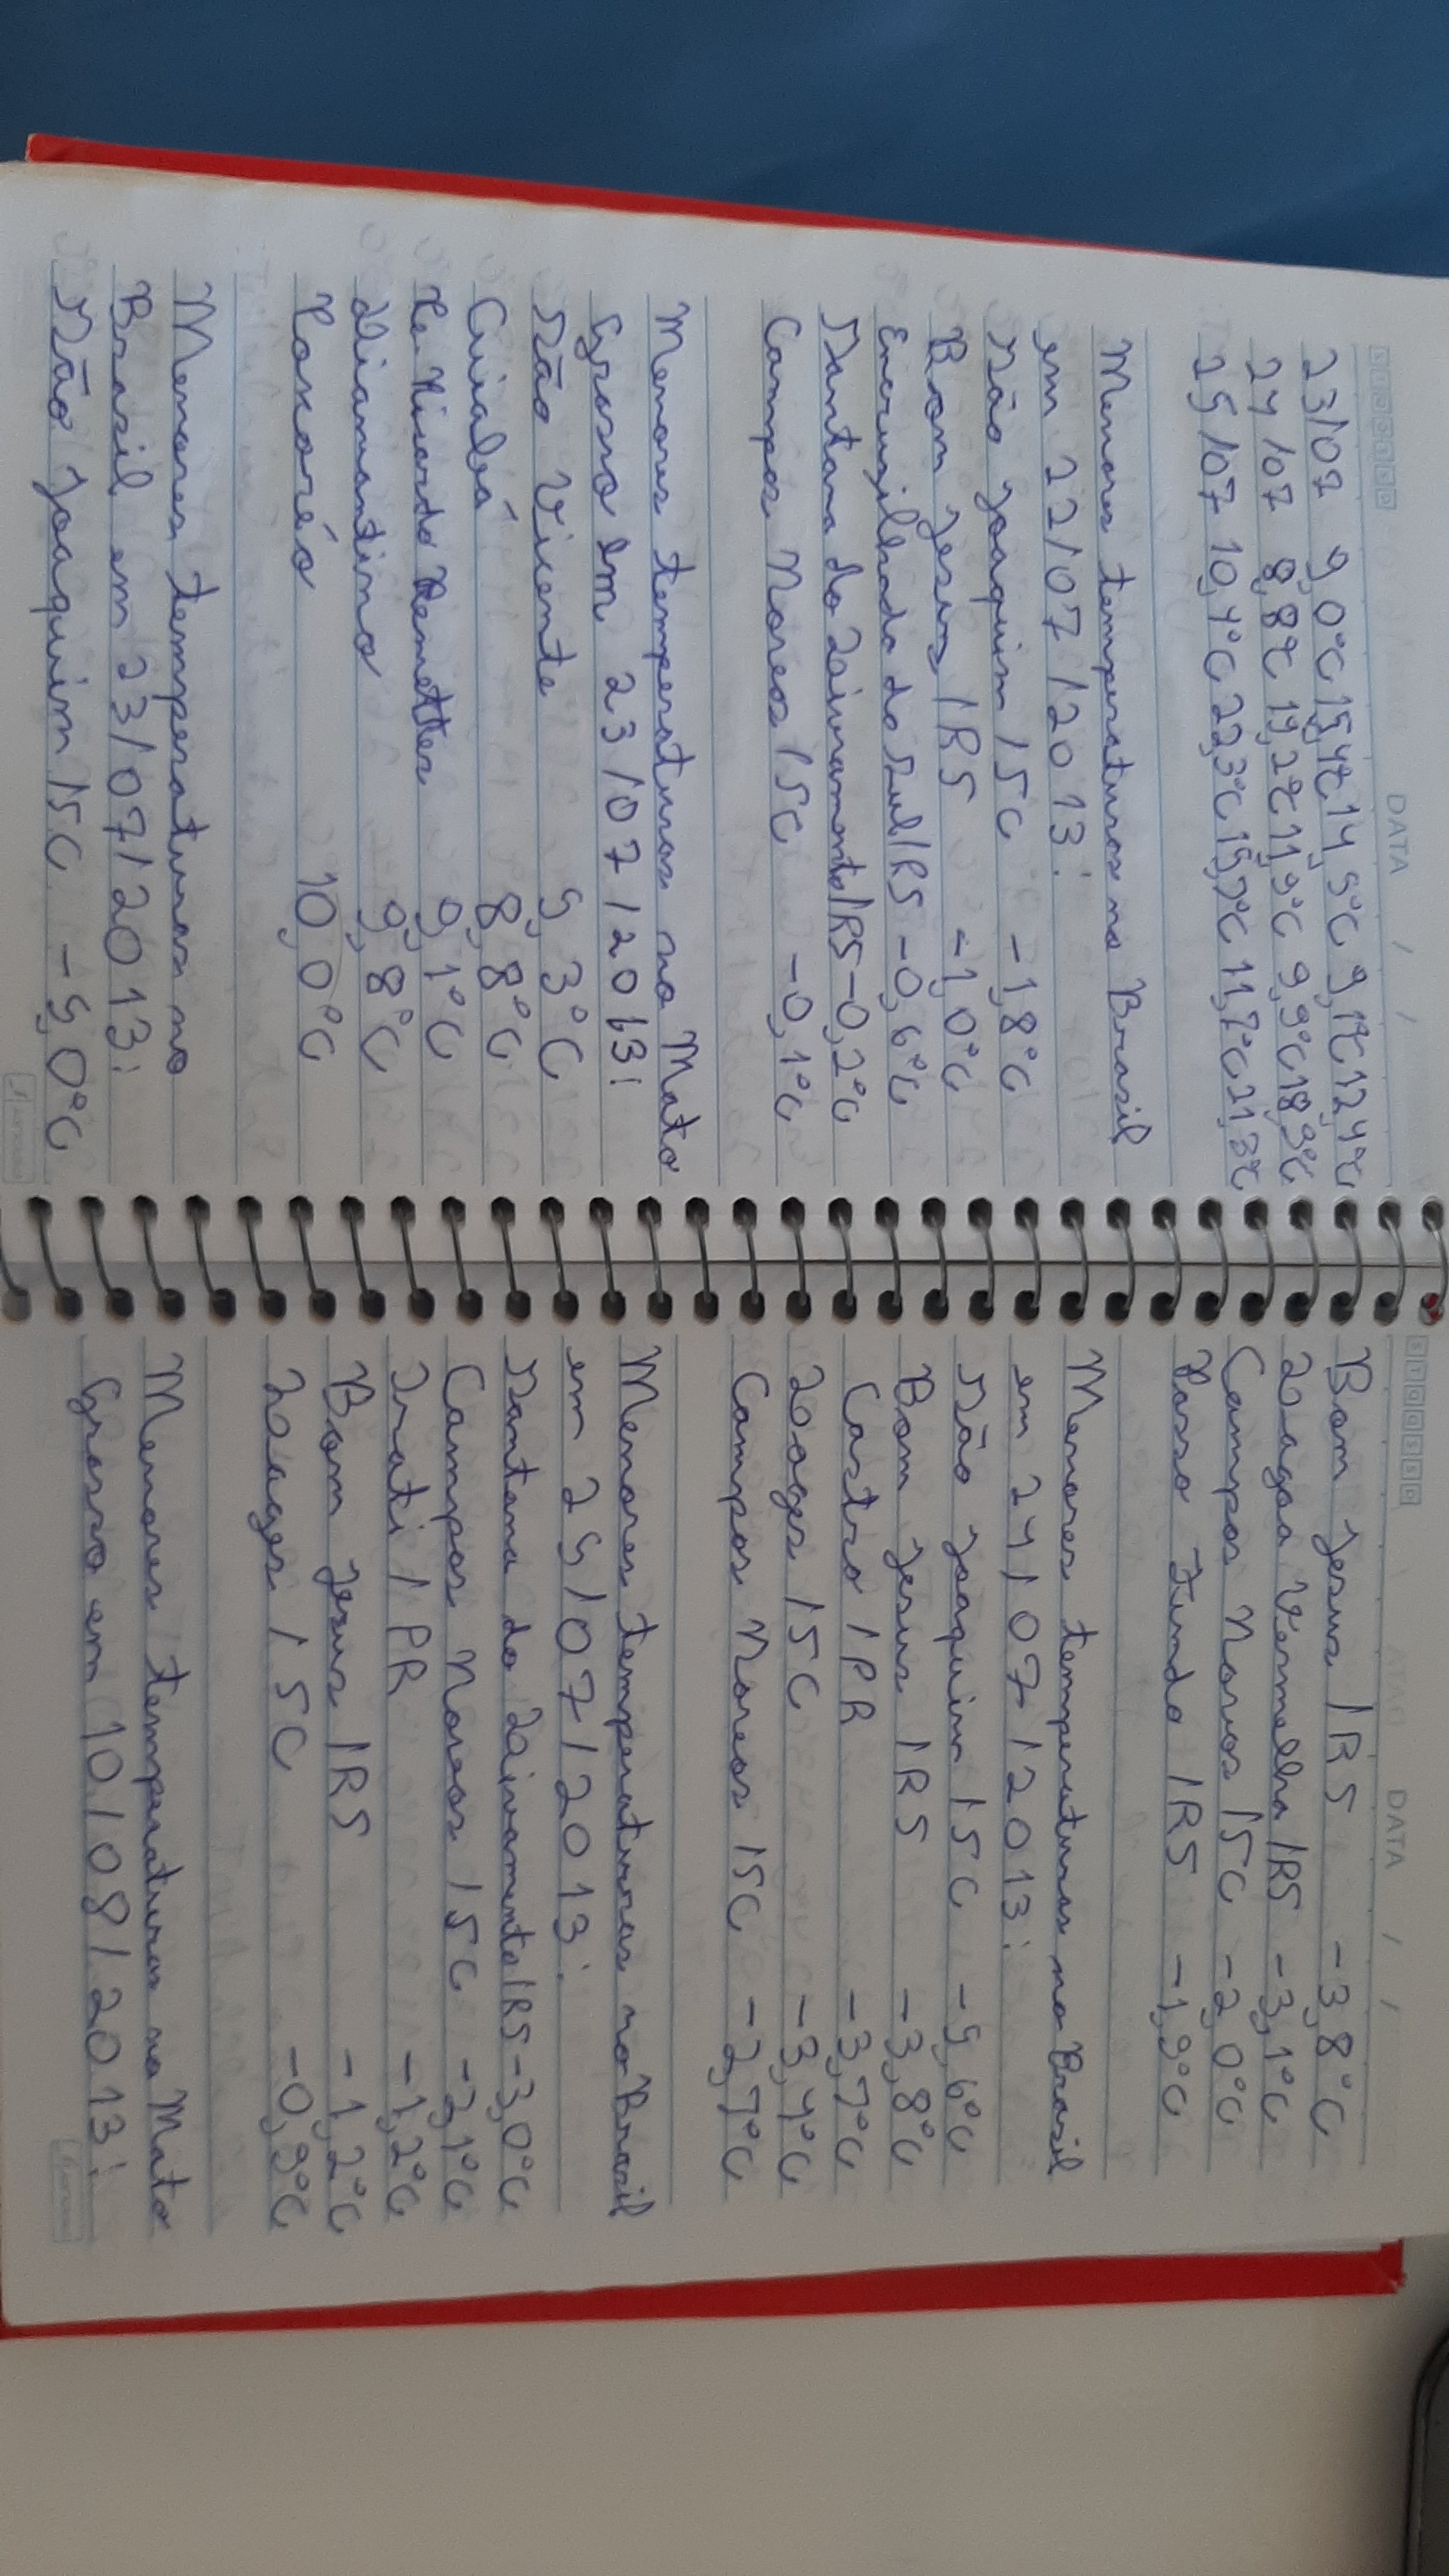 STQQSSD
DATA / /
23/07 9,0°C 15,4°C 14,5°C 9,1°C 12,4°C
24/07 8,8°C 19,2°C 11,9°C 9,9°C 18,9°C
25/07 10,4°C 22,3°C 15,7°C 11,7°C 21,3°C
Menores temperaturas no Brasil
em 22/07/2013:
São Joaquim/SC -1,8°C
Bom Jesus/RS -1,0°C
Encruzilhada do Sul/RS -0,6°C
Santana do Livramento/RS -0,2°C
Campos Novos/SC -0,1°C
Menores temperaturas no Mato
Grosso em 23/07/2013:
São Vicente 5,3°C
Cuiabá 8,8°C
Pe. Ricardo Remetter 9,1°C
Diamantino 9,8°C
Poxoréo 10,0°C
Menores temperaturas no
Brasil em 23/07/2013:
São Joaquim/SC -5,0°C
STQQSSD
DATA / /
Bom Jesus/RS -3,8°C
Lagoa Vermelha/RS -3,1°C
Campos Novos/SC -2,0°C
Passo Fundo/RS -1,9°C
Menores temperaturas no Brasil
em 24/07/2013:
São Joaquim/SC -5,6°C
Bom Jesus/RS -3,8°C
Castro/PR -3,7°C
Lages/SC -3,4°C
Campos Novos/SC -2,7°C
Menores temperaturas no Brasil
em 25/07/2013:
Santana do Livramento/RS -3,0°C
Campos Novos/SC -2,1°C
Irati/PR -1,2°C
Bom Jesus/RS -1,2°C
Lages/SC -0,9°C
Menores temperaturas no Mato
Grosso em 10/08/2013: